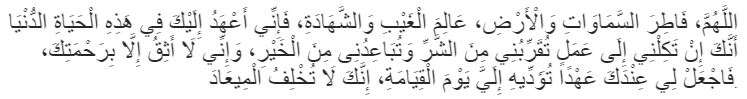 اللَّهُمَّ، فَاطِرَ السَّمَاوَاتِ وَالْأَرْضِ، عَالِمَ الْغَيْبِ وَالشَّهَادَةِ، فَإِنِّي أَعْهَدُ إِلَيْكَ فِي هَذِهِ الْحَيَاةِ الدُّنْيَا
أَنَّكَ إِنْ تَكِلْنِي إِلَى عَمَلٍ تُقَرِّبُنِي مِنَ الشَّرِّ وَتُبَاعِدُنِي مِنَ الْخَيْرِ، وَإِنِّي لَا أَثِقُ إِلَّا بِرَحْمَتِكَ،
فَاجْعَلْ لِي عِنْدَكَ عَهْدًا تُؤَدِّيهِ إِلَيَّ يَوْمَ الْقِيَامَةِ، إِنَّكَ لَا تُخْلِفُ الْمِيعَادَ.